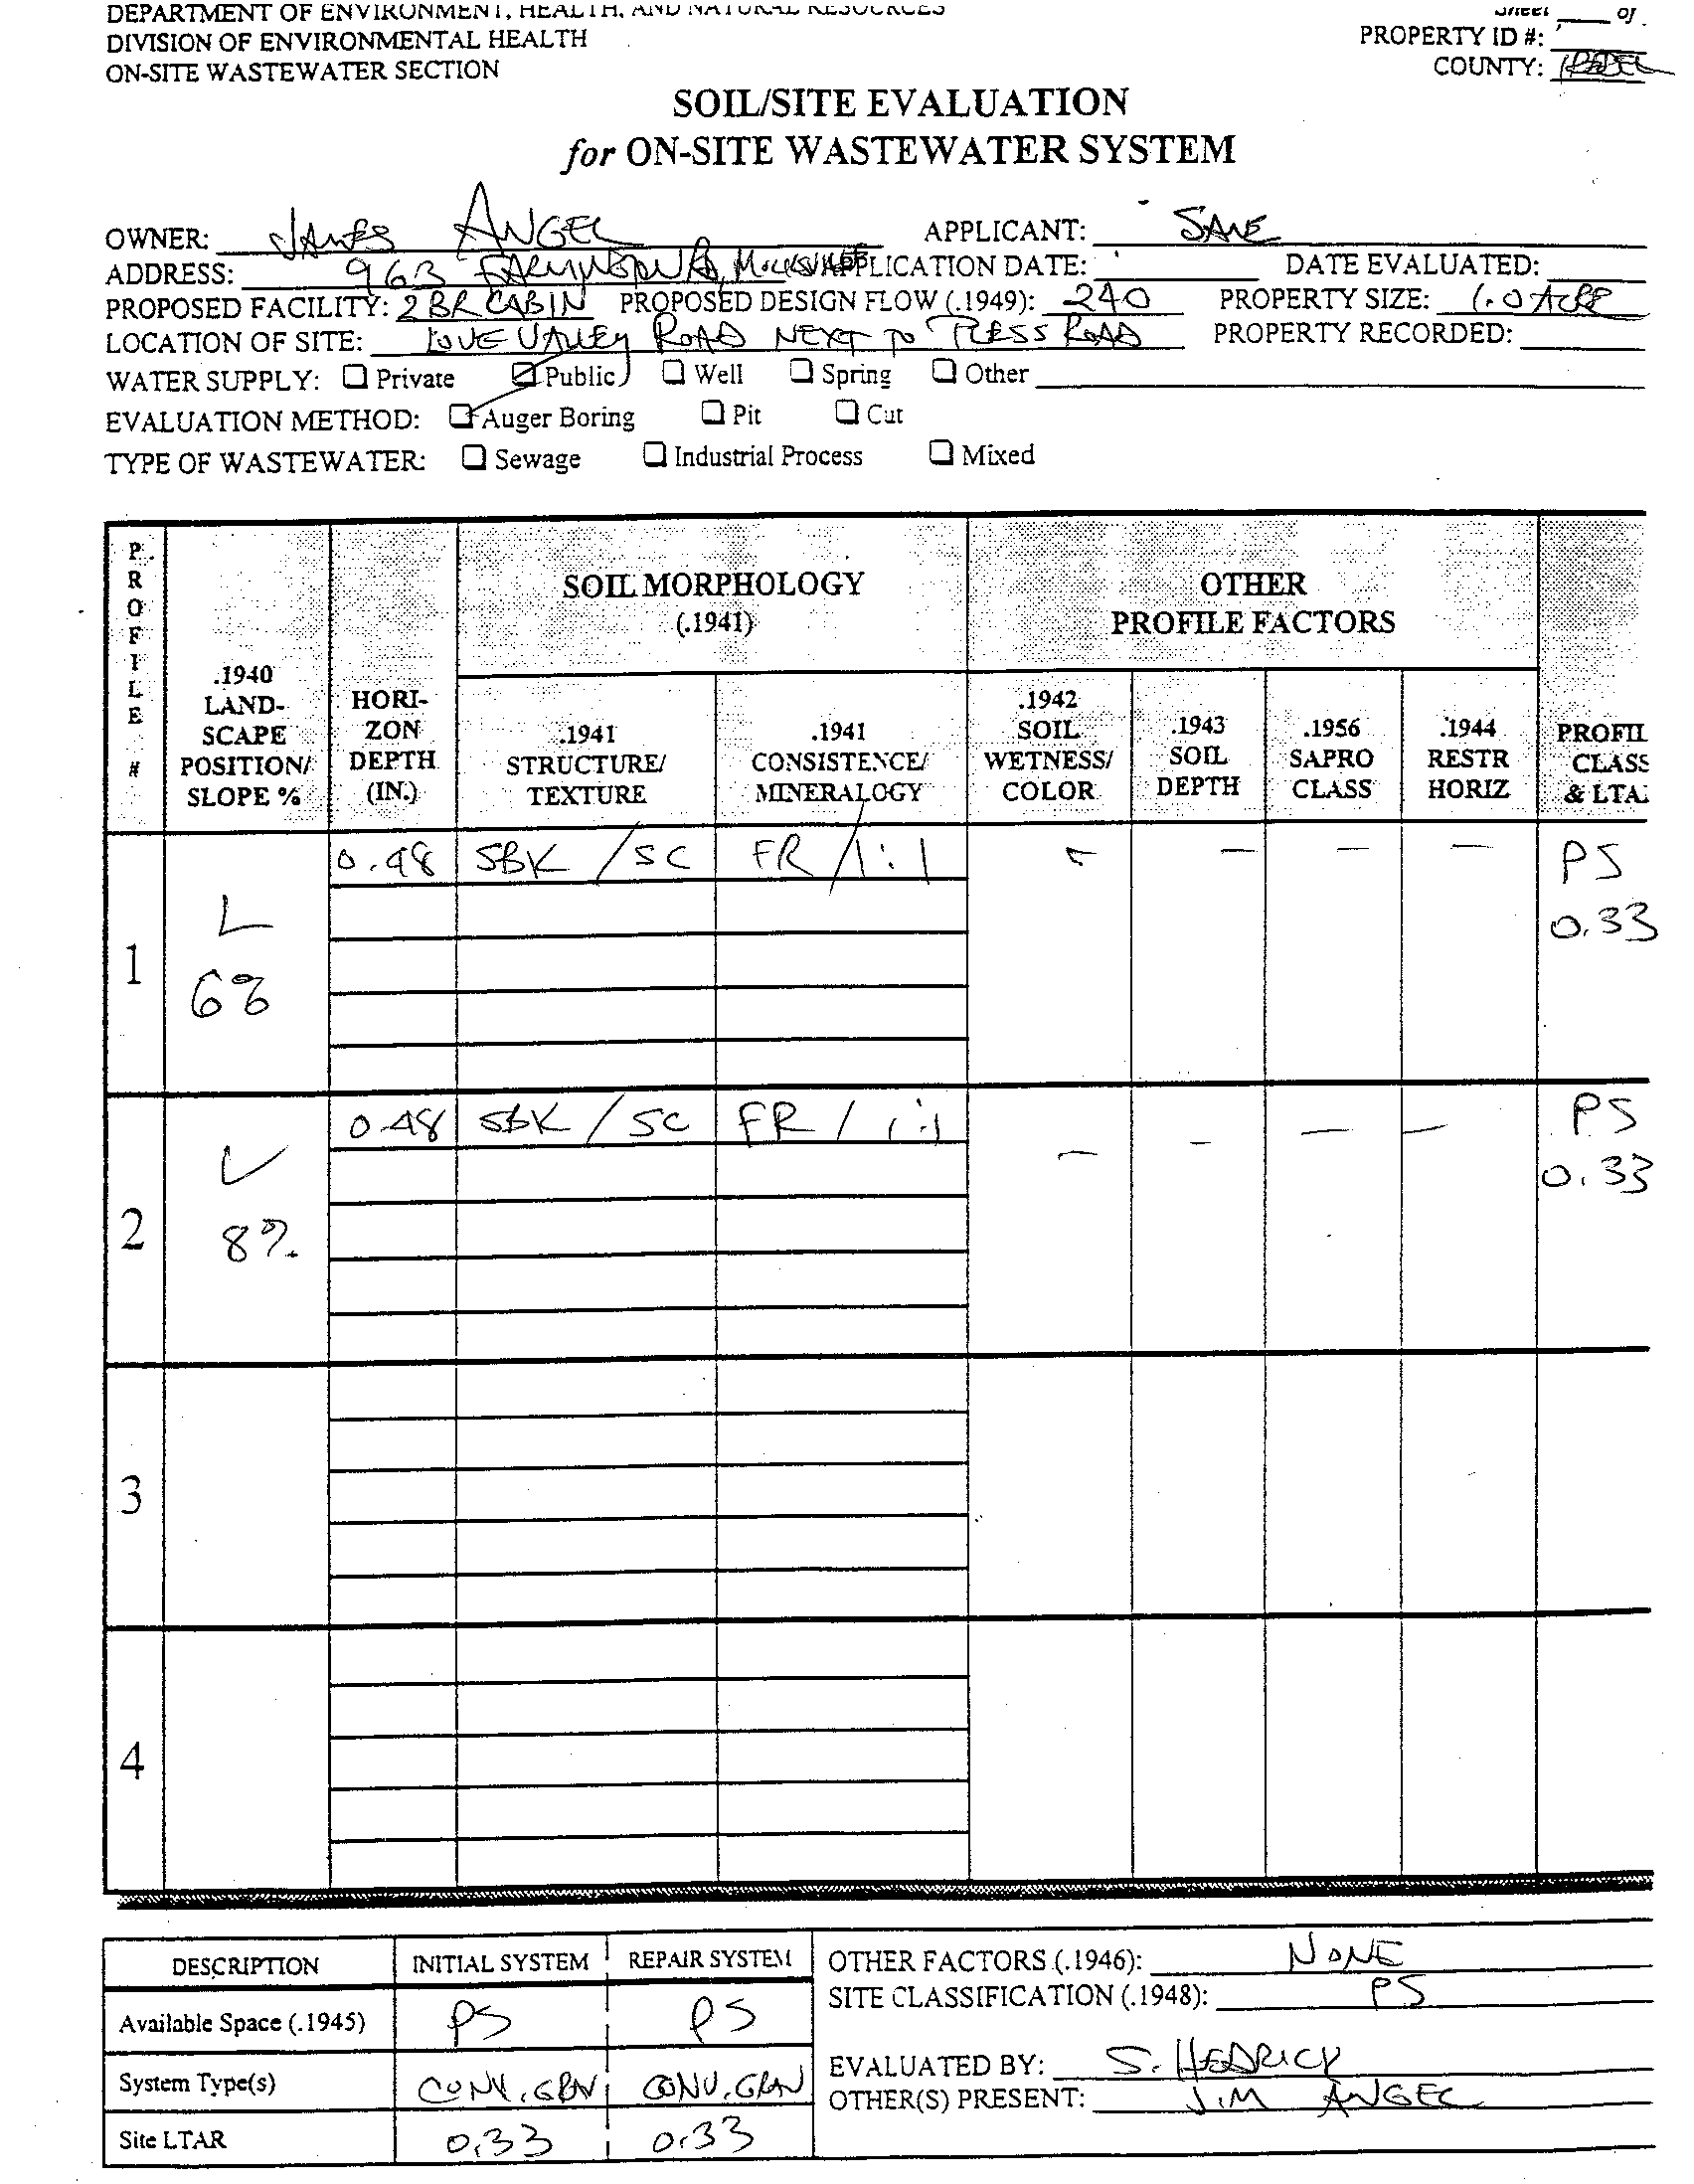 DEPARTMENT OF ENVIRONMENT, HEALTH, AND NATURAL RESOURCES
Sheet ____ of
DIVISION OF ENVIRONMENTAL HEALTH
PROPERTY ID #:
ON-SITE WASTEWATER SECTION
COUNTY: IREDELL
SOIL/SITE EVALUATION
for ON-SITE WASTEWATER SYSTEM
OWNER: JAMES ANGEL APPLICANT: SAME
ADDRESS: 963 FARMINGTON RD, MOCKSVILLE APPLICATION DATE: DATE EVALUATED:
PROPOSED FACILITY: 2 BR CABIN PROPOSED DESIGN FLOW (.1949): 240 PROPERTY SIZE: 1.0 ACRE
LOCATION OF SITE: LOVE VALLEY ROAD NEXT TO ROAD PROPERTY RECORDED:
WATER SUPPLY: ☐ Private ☑ Public ☐ Well ☐ Spring ☐ Other
EVALUATION METHOD: ☑ Auger Boring ☐ Pit ☐ Cut
TYPE OF WASTEWATER: ☐ Sewage ☐ Industrial Process ☐ Mixed
PROFILE #
.1940 LAND-
SCAPE
POSITION/
SLOPE %
HORI-
ZON
DEPTH
(IN.)
SOIL MORPHOLOGY
(.1941)
.1941
STRUCTURE/
TEXTURE
.1941
CONSISTENCE/
MINERALOGY
OTHER
PROFILE FACTORS
.1942
SOIL
WETNESS/
COLOR
.1943
SOIL
DEPTH
.1956
SAPRO
CLASS
.1944
RESTR
HORIZ
PROFIL
CLASS
& LTA
1 L 0-48 SBK / SC FR / 1:1 – – – – PS
6% 0.33
2 L 0-48 SBK / SC FR / 1:1 – – – – PS
8% 0.33
3
4
DESCRIPTION INITIAL SYSTEM REPAIR SYSTEM
Available Space (.1945) PS PS
System Type(s) CONV. GRAV CONV. GRAV
Site LTAR 0.33 0.33
OTHER FACTORS (.1946): NONE
SITE CLASSIFICATION (.1948): PS
EVALUATED BY: S. HEDRICK
OTHER(S) PRESENT: JIM ANGEL